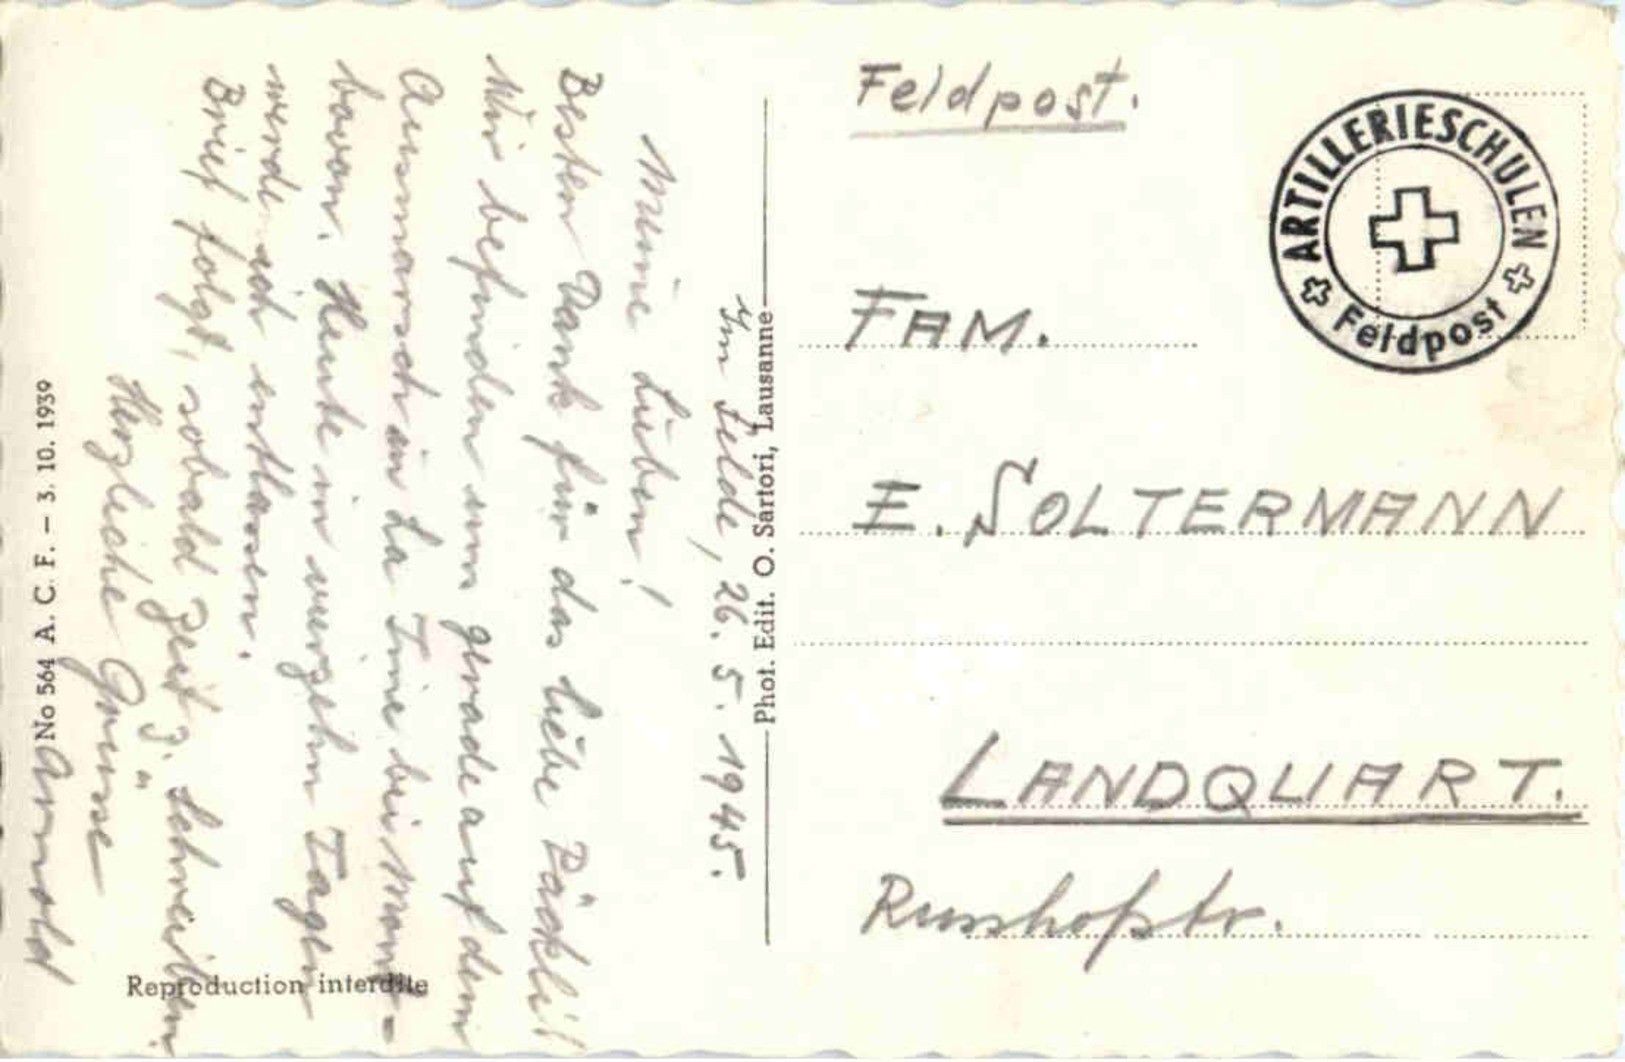 Feldpost.
ARTILLERIESCHULEN
Feldpost
FAM.
E. SOLTERMANN
LANDQUART.
Phot. Edit. O. Sartori, Lausanne
Im Felde, 26. 5. 1945.
Meine Lieben!
Besten Dank für das liebe Päckli!
Wir befinden uns gerade auf dem
Ausmarsch in La Tine bei Mont-
bovon. Heute in vierzehn Tagen
werde ich entlassen.
Brief folgt, sobald Zeit z. Schreiben
Herzliche Grüsse
Arnold
No 564 A. C. F. – 3. 10. 1939
Reproduction interdite